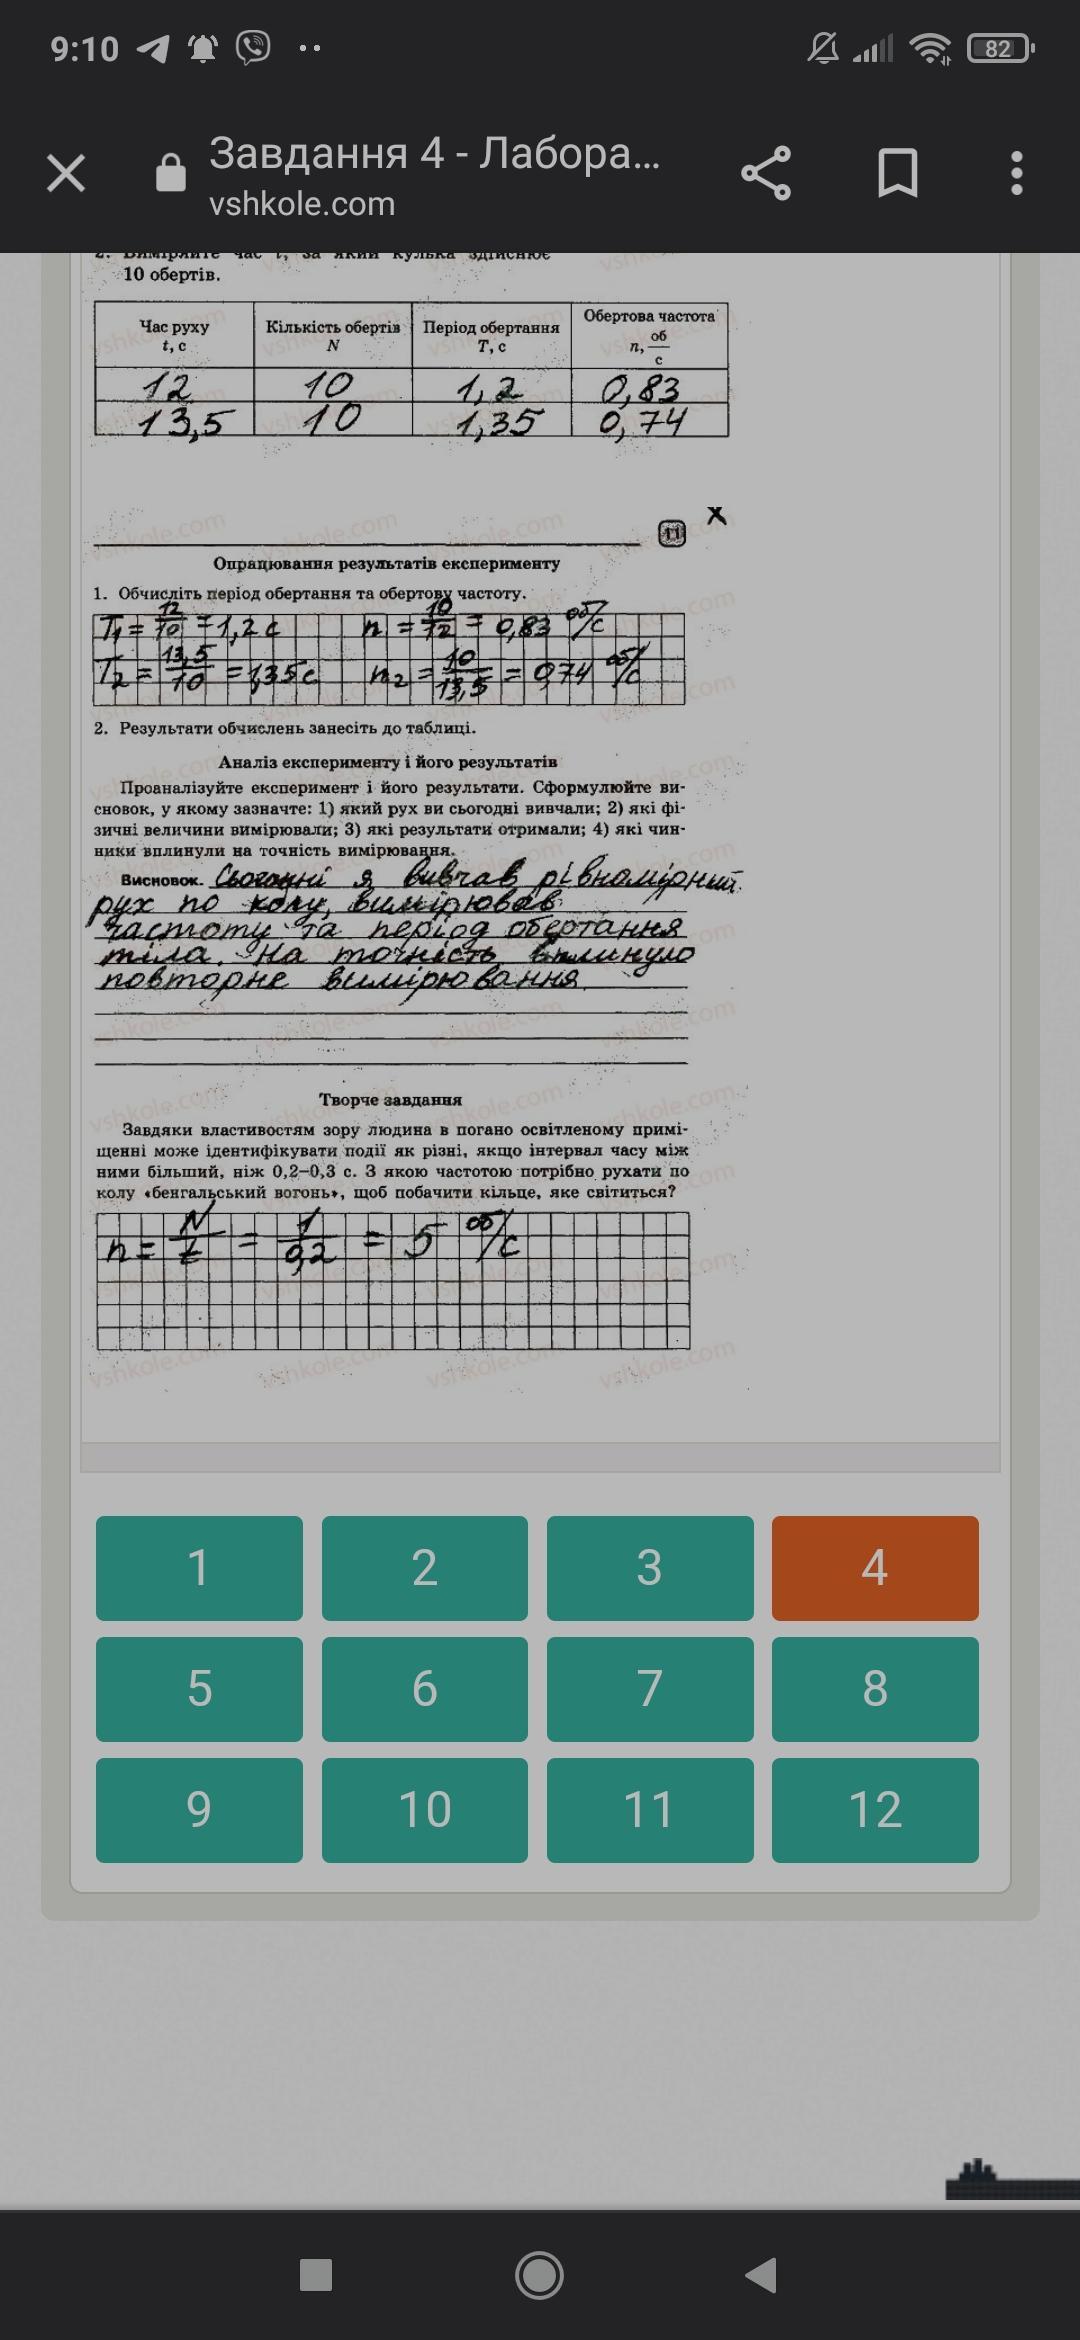 9:10
82
Завдання 4 - Лабора...
vshkole.com
2. Виміряйте час t, за який кулька здійснює
10 обертів.
Час руху t, с
Кількість обертів N
Період обертання T, с
Обертова частота n, об/с
12 10 1,2 0,83
13,5 10 1,35 0,74
11
x
Опрацювання результатів експерименту
1. Обчисліть період обертання та обертову частоту.
T₁ = 12/10 = 1,2 с n = 10/12 = 0,83 об/с
T₂ = 13,5/10 = 1,35 с n₂ = 10/13,5 = 0,74 об/с
2. Результати обчислень занесіть до таблиці.
Аналіз експерименту і його результатів
Проаналізуйте експеримент і його результати. Сформулюйте ви-
сновок, у якому зазначте: 1) який рух ви сьогодні вивчали; 2) які фі-
зичні величини вимірювали; 3) які результати отримали; 4) які чин-
ники вплинули на точність вимірювання.
Висновок. Сьогодні я вивчав рівномірний
рух по колу, вимірював
частоту та період обертання
тіла. На точність вплинуло
повторне вимірювання.
Творче завдання
Завдяки властивостям зору людина в погано освітленому примі-
щенні може ідентифікувати події як різні, якщо інтервал часу між
ними більший, ніж 0,2–0,3 с. З якою частотою потрібно рухати по
колу «бенгальський вогонь», щоб побачити кільце, яке світиться?
n = N/t = 1/0,2 = 5 об/с
1 2 3 4
5 6 7 8
9 10 11 12